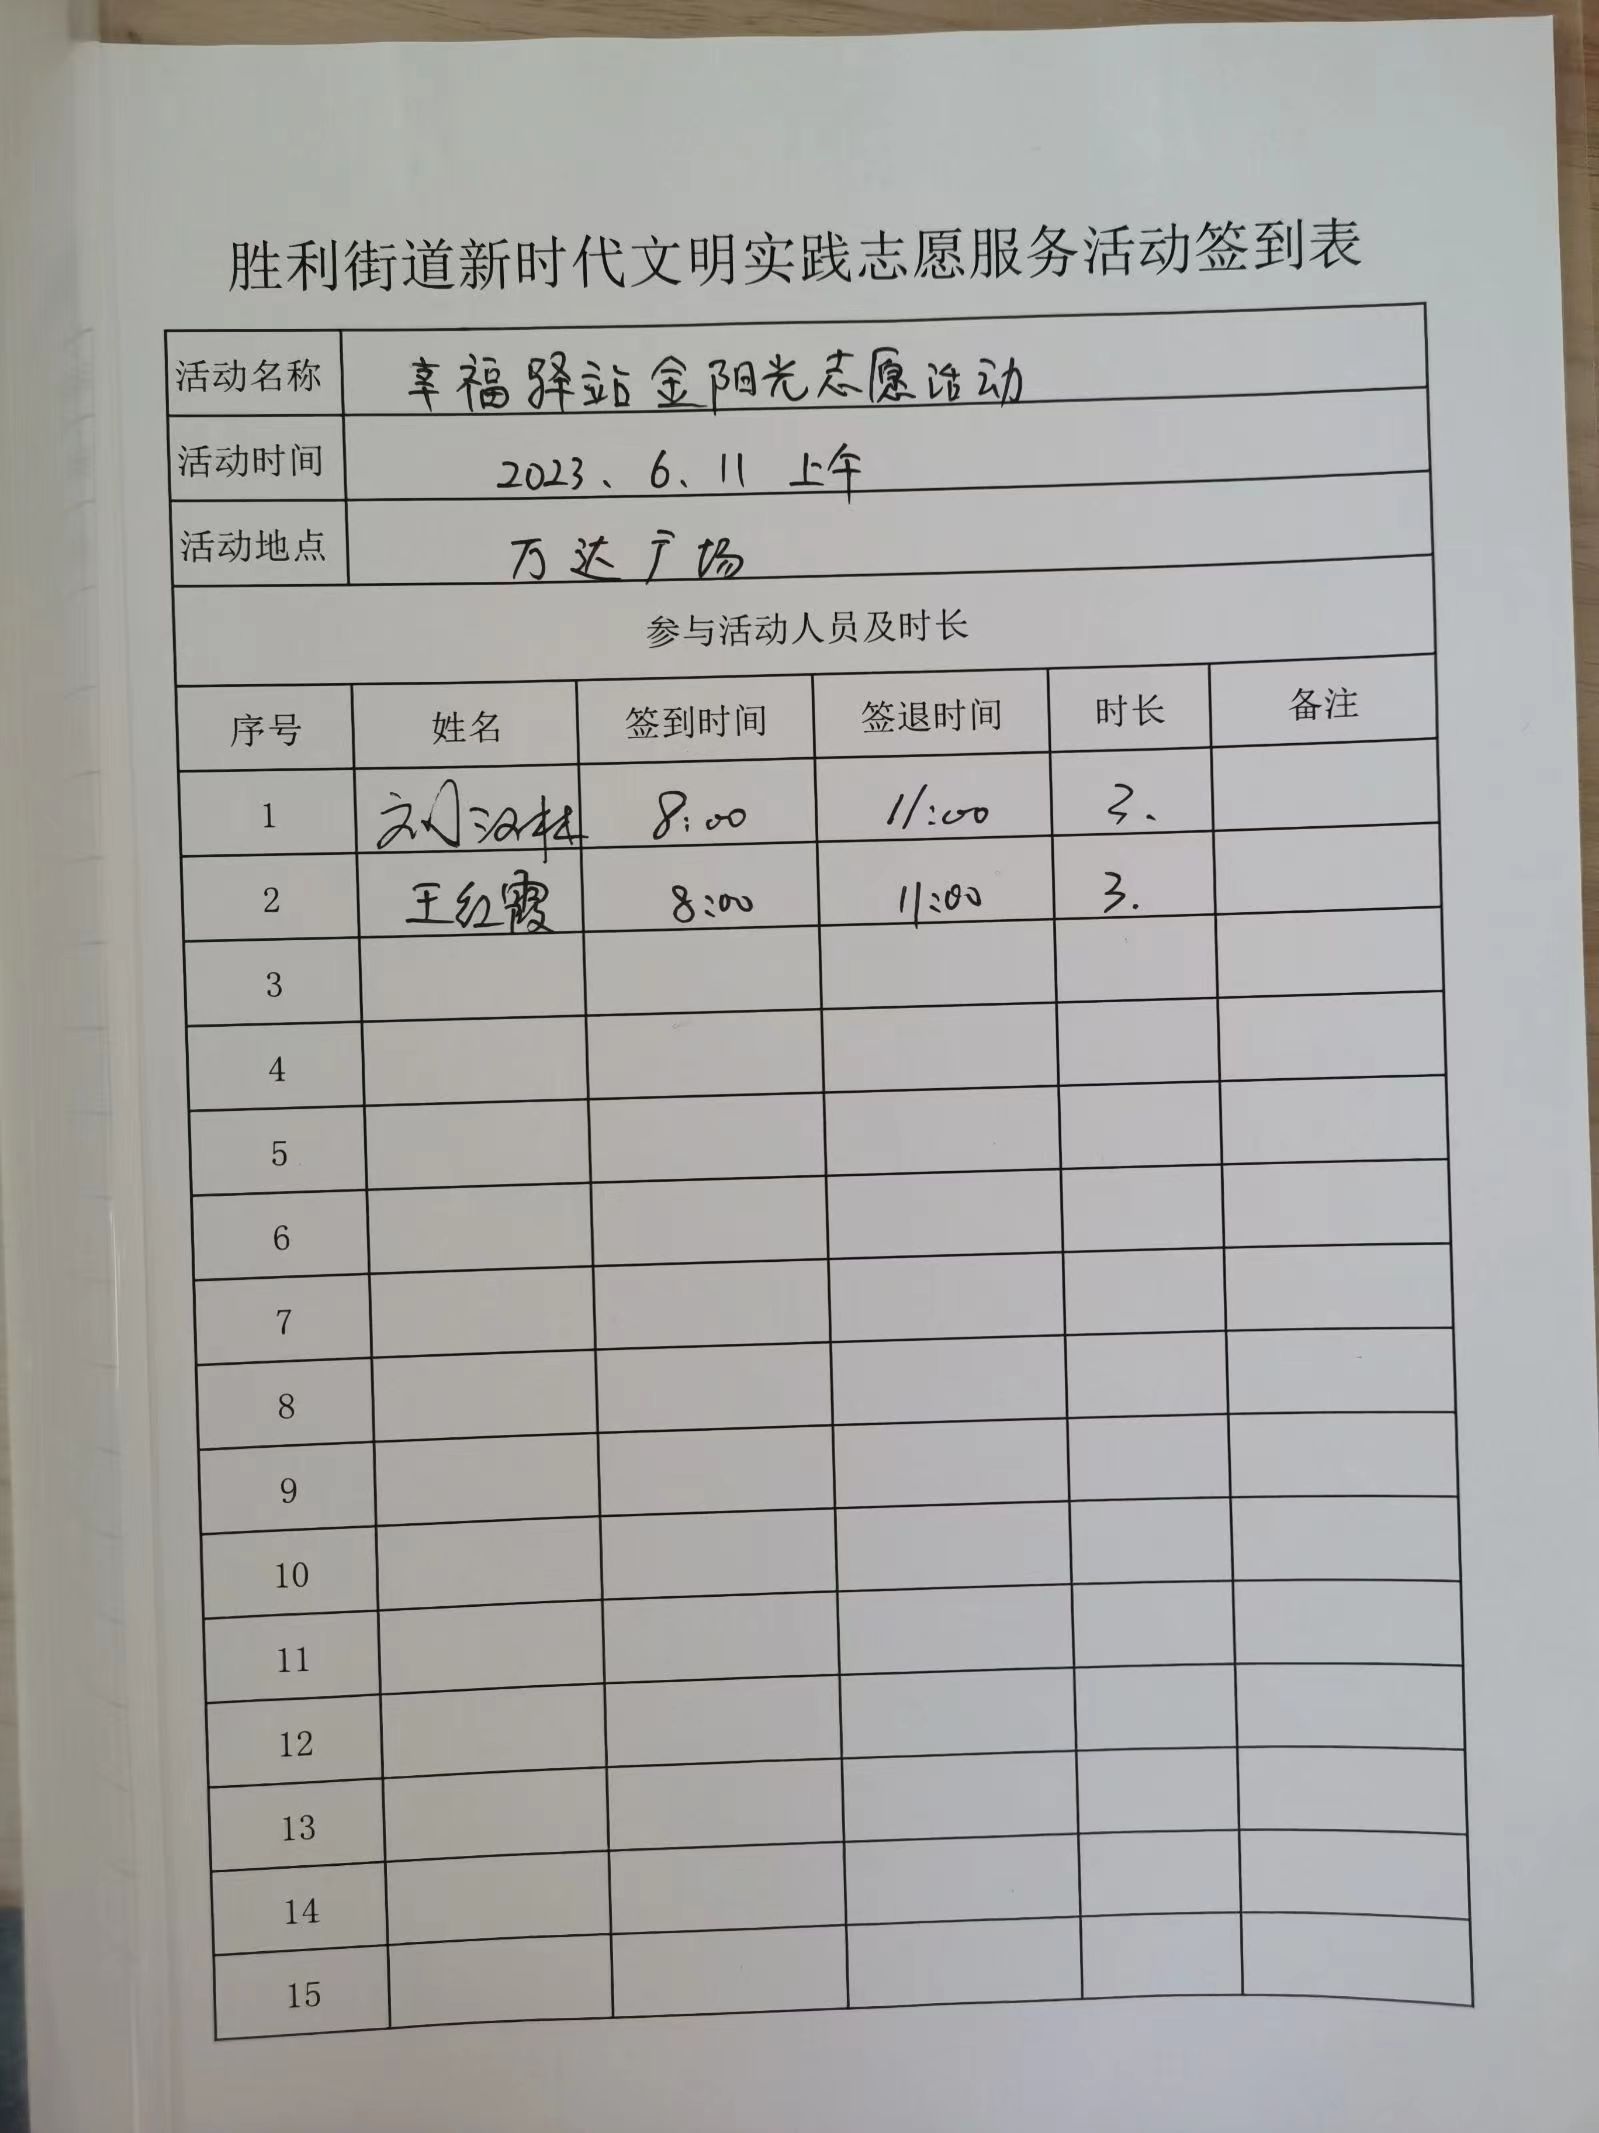 胜利街道新时代文明实践志愿服务活动签到表
活动名称 幸福驿站金阳光志愿活动
活动时间 2023、6、11 上午
活动地点 万达广场
参与活动人员及时长
序号 姓名 签到时间 签退时间 时长 备注
1 刘汉林 8:00 11:00 3.
2 王红霞 8:00 11:00 3.
3
4
5
6
7
8
9
10
11
12
13
14
15